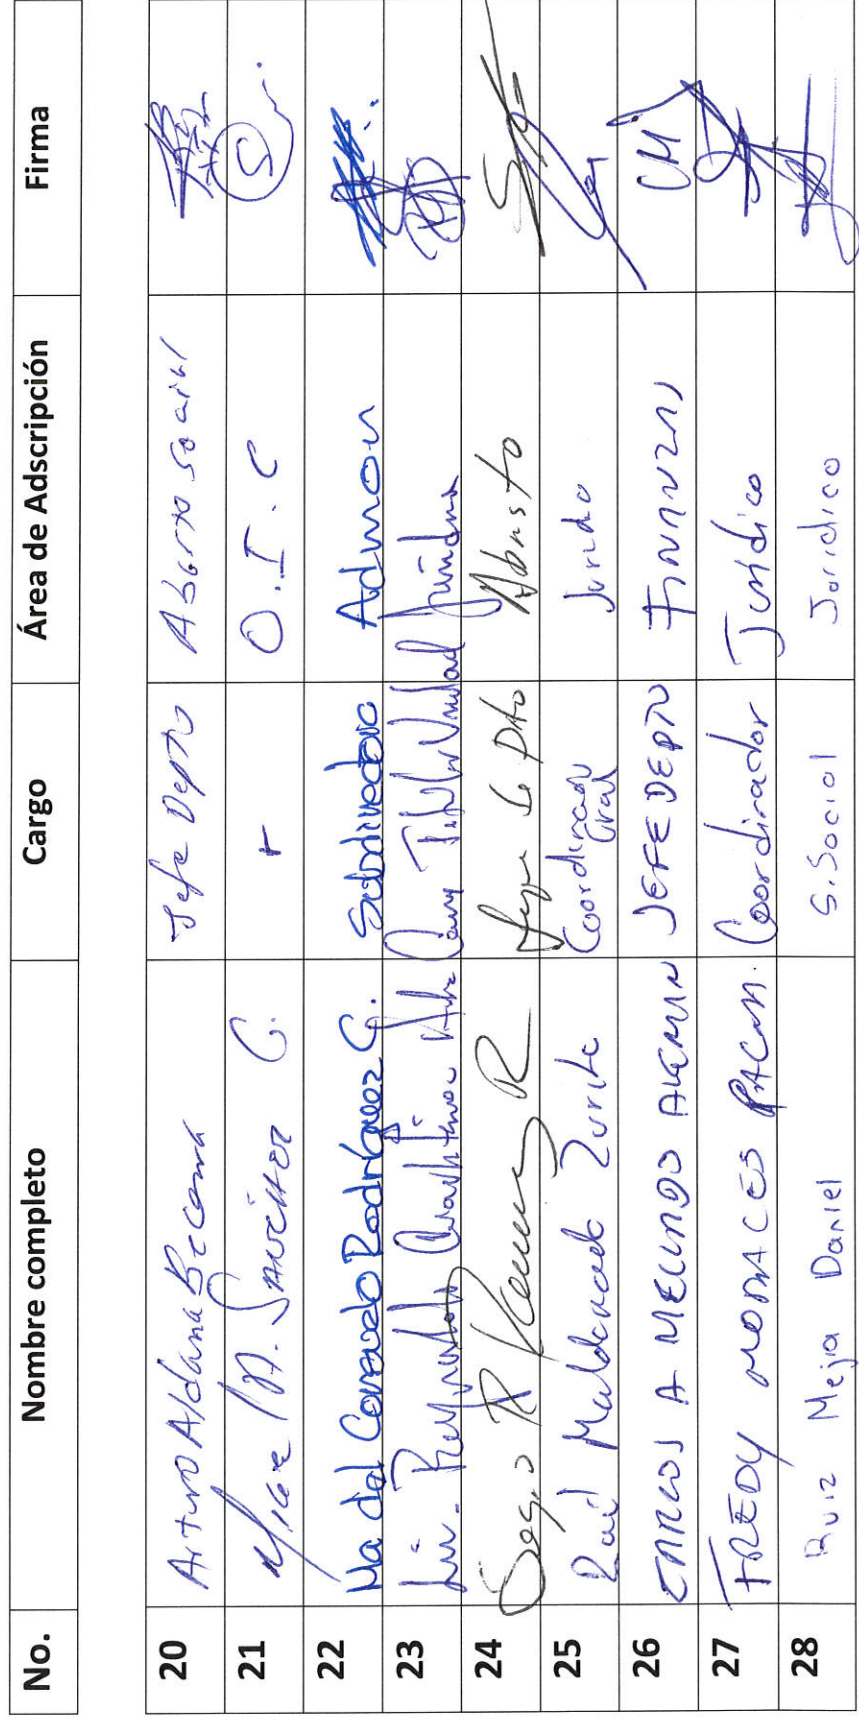 No. Nombre completo Cargo Área de Adscripción Firma
20 Arturo Aldana Becerra Jefe Depto Abasto Social
21 Miguel A. Sanchez C. O.I.C
22 Ma del Consuelo Rodríguez G. Subdirectora Admon
23 Lic. Reynaldo
24 Sergio R Ramos R Abasto
25 Raúl Maldonado Zurita Coordinador Gral Jurídico
26 CARLOS A MELLADO ALEMAN JEFE DEPTO FINANZAS CM
27 FREDY Coordinador Jurídico
28 Ruiz Mejia Daniel S. Social Jurídico